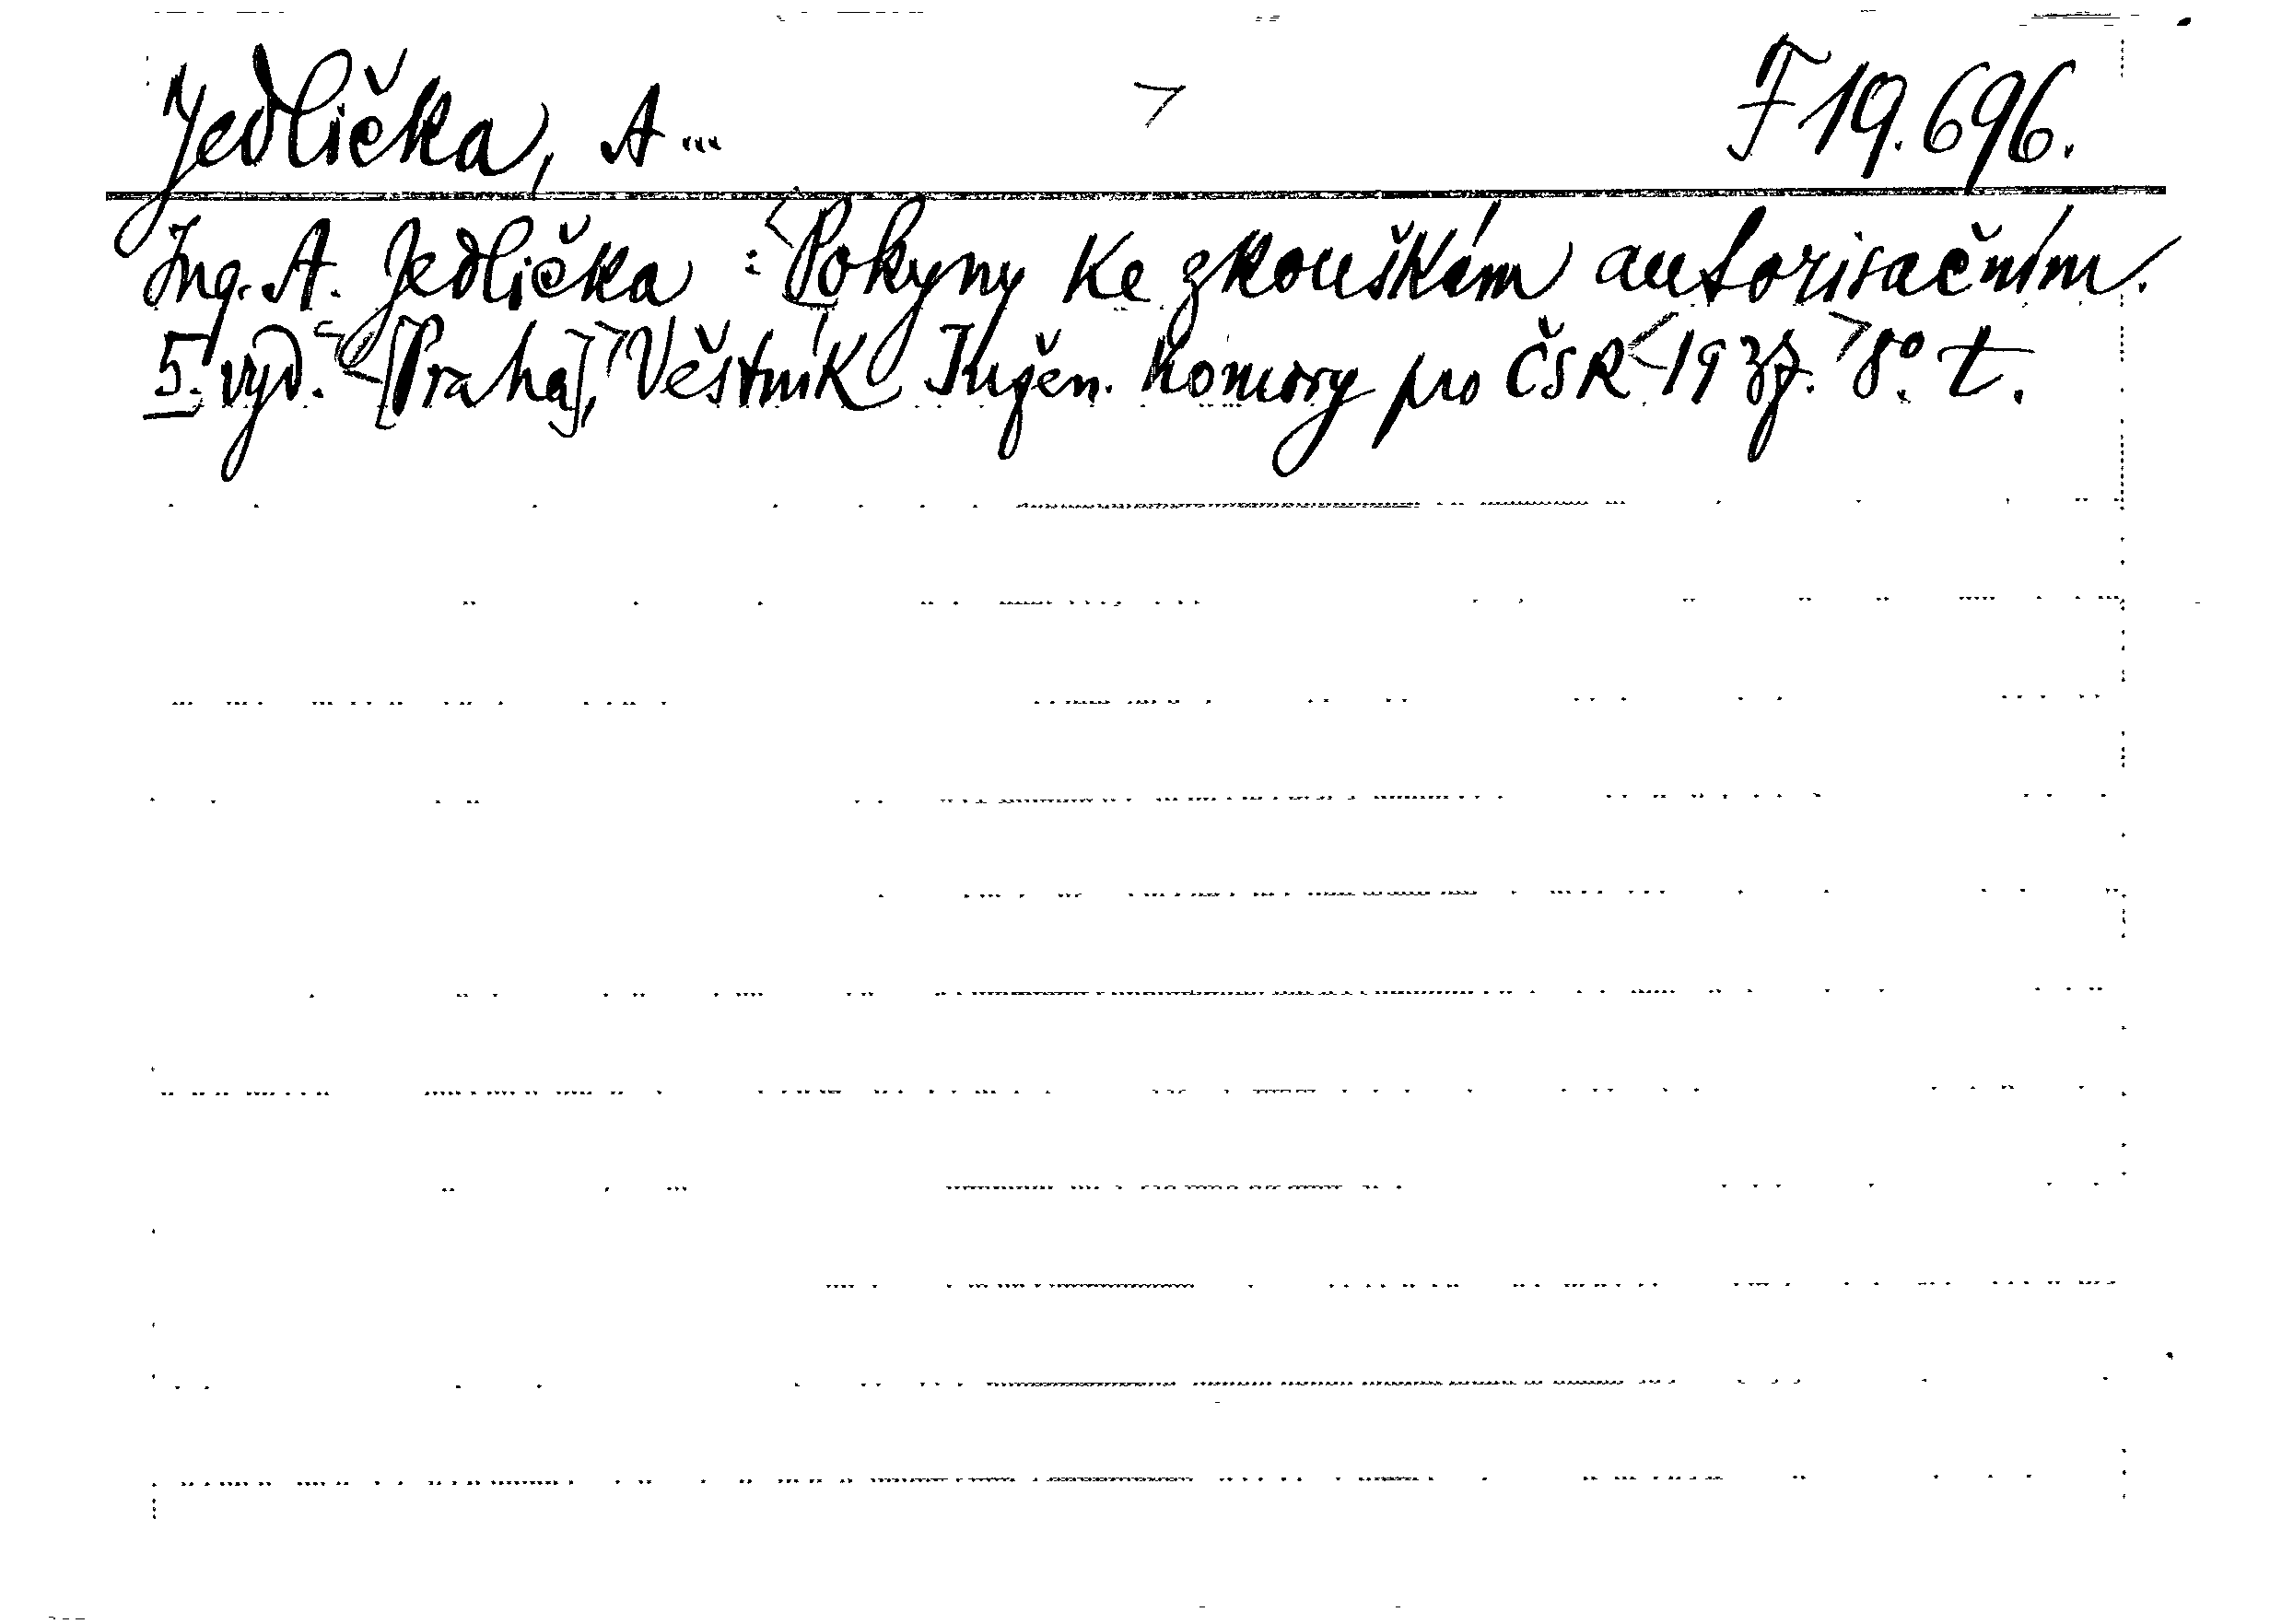 Jedlička, A... F 19.696.
Ing. A. Jedlička : Pokyny ke zkouškám autorisačním.
5. vyd. [Praha], Věstník Inžen. komory pro ČSR 1937. 8°. t.